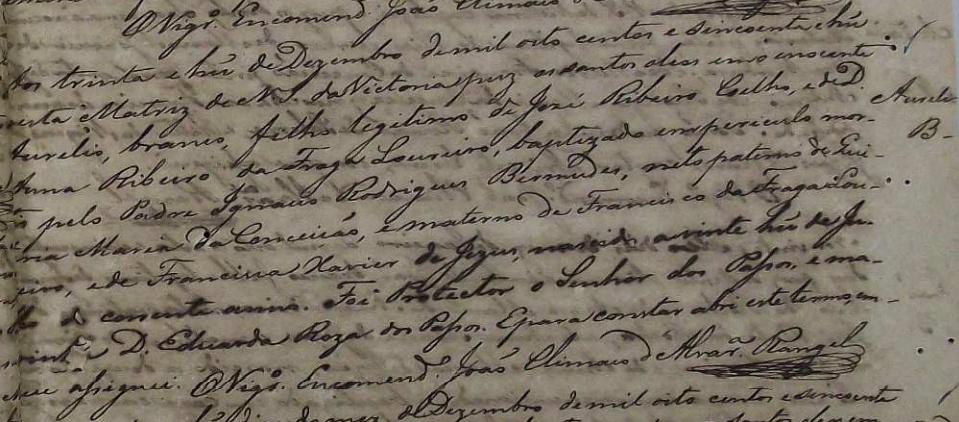 O Vigr.º Encomend.º João Climaco d'
Aos trinta e hũ de Dezembro de mil oito centos e sincoenta e hũ
nesta Matriz de N. S. da Victoria puz os santos oleos em o inocente
Aurelio, branco, filho legitimo de José Ribeiro Coelho, e de D.
Aurelio
B-
Anna Ribeiro da Fraga Loureiro, baptizado em periculo mor-
pelo Padre Ignacio Rodrigues Bermudes, neto paterno de Qui-
ria Maria da Conceicão, e materno de Francisco da Fraga Lou-
reiro, e de Francisca Xavier de Jezus, nascido a vinte hũ de Ju-
lho do corrente anno. Foi Protector o Senhor dos Passos, e ma-
D. Eduarda Roza dos Passos. E para constar abri este termo, em
assignei. O Vigr.º Encomend.º João Climaco d'Alvar.ª Rangel
de Dezembro de mil oito centos e sincoenta